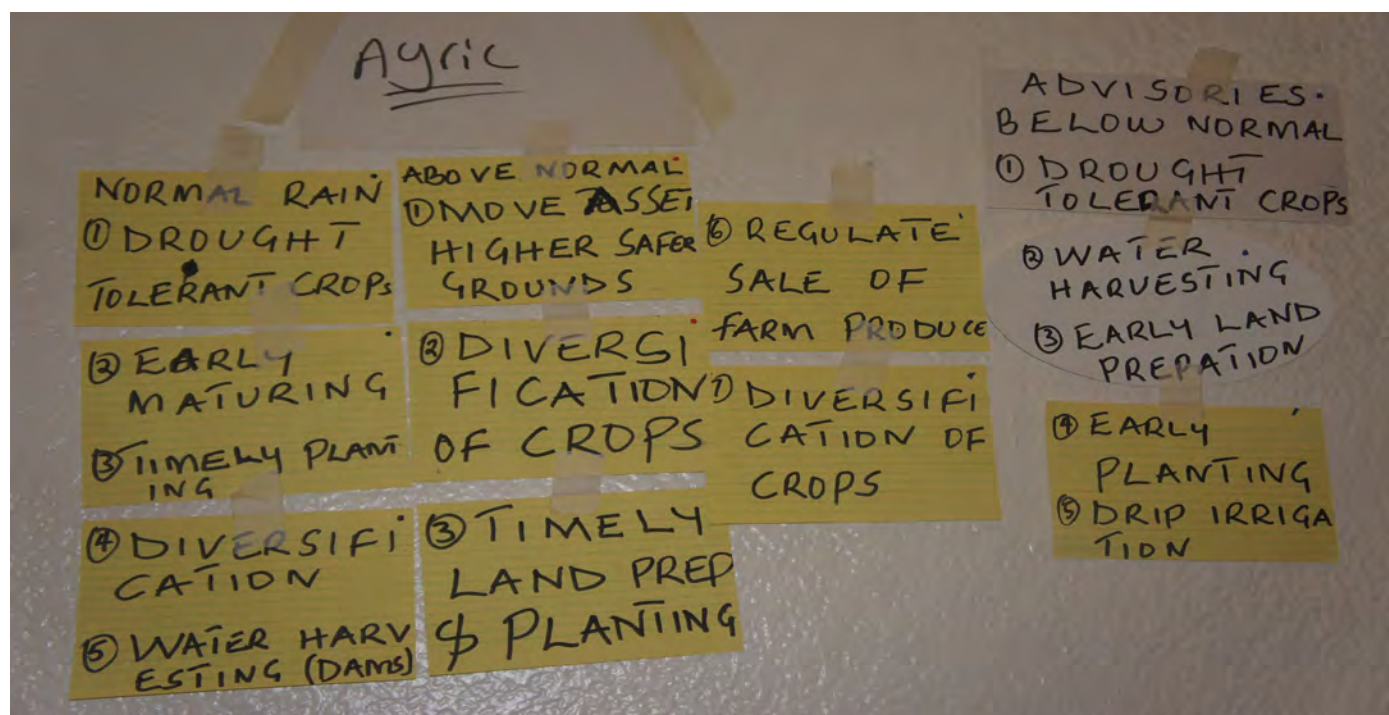 Agric
NORMAL RAIN
① DROUGHT
TOLERANT CROPS
② EARLY
MATURING
③ TIMELY PLANT
ING
④ DIVERSIFI
CATION
⑤ WATER HARV
ESTING (DAMS)
ABOVE NORMAL
① MOVE ASSET
HIGHER SAFER
GROUNDS
② DIVERSI
FICATION
OF CROPS
③ TIMELY
LAND PREP
$ PLANTING
⑥ REGULATE
SALE OF
FARM PRODUCE
⑦ DIVERSIFI
CATION OF
CROPS
ADVISORIES.
BELOW NORMAL
① DROUGHT
TOLERANT CROPS
② WATER
HARVESTING
③ EARLY LAND
PREPATION
④ EARLY
PLANTING
⑤ DRIP IRRIGA
TION